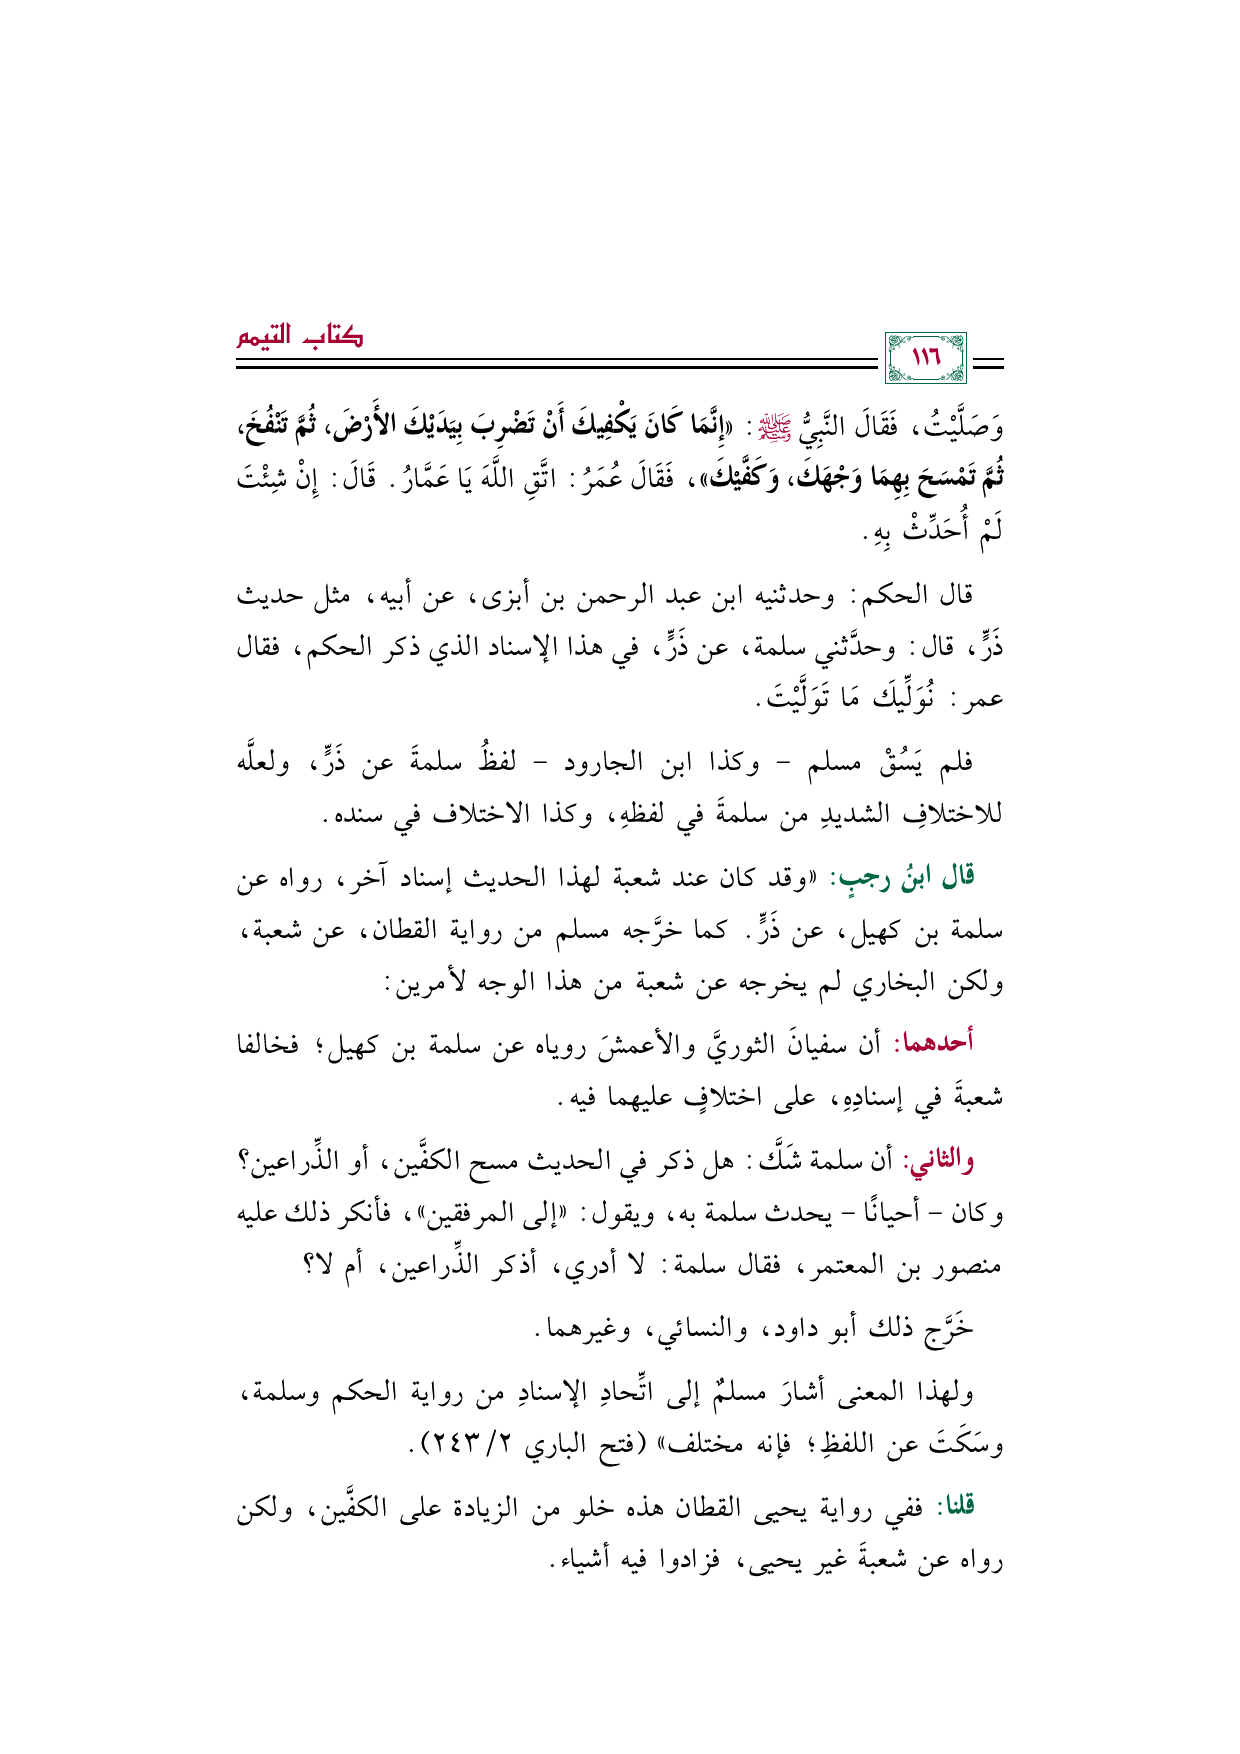 كتاب التيمم
١١٦
وَصَلَّيْتُ، فَقَالَ النَّبِيُّ ﷺ: «إِنَّمَا كَانَ يَكْفِيكَ أَنْ تَضْرِبَ بِيَدَيْكَ الأَرْضَ، ثُمَّ تَنْفُخَ،
ثُمَّ تَمْسَحَ بِهِمَا وَجْهَكَ، وَكَفَّيْكَ»، فَقَالَ عُمَرُ: اتَّقِ اللَّهَ يَا عَمَّارُ. قَالَ: إِنْ شِئْتَ
لَمْ أُحَدِّثْ بِهِ.
قال الحكم: وحدثنيه ابن عبد الرحمن بن أبزى، عن أبيه، مثل حديث
ذَرٍّ، قال: وحدَّثني سلمة، عن ذَرٍّ، في هذا الإسناد الذي ذكر الحكم، فقال
عمر: نُوَلِّيكَ مَا تَوَلَّيْتَ.
فلم يَسُقْ مسلم – وكذا ابن الجارود – لفظُ سلمةَ عن ذَرٍّ، ولعلَّه
للاختلافِ الشديدِ من سلمةَ في لفظهِ، وكذا الاختلاف في سنده.
قال ابنُ رجبٍ: «وقد كان عند شعبة لهذا الحديث إسناد آخر، رواه عن
سلمة بن كهيل، عن ذَرٍّ. كما خرَّجه مسلم من رواية القطان، عن شعبة،
ولكن البخاري لم يخرجه عن شعبة من هذا الوجه لأمرين:
أحدهما: أن سفيانَ الثوريَّ والأعمشَ روياه عن سلمة بن كهيل؛ فخالفا
شعبةَ في إسنادِهِ، على اختلافٍ عليهما فيه.
والثاني: أن سلمة شَكَّ: هل ذكر في الحديث مسح الكفَّين، أو الذِّراعين؟
وكان – أحيانًا – يحدث سلمة به، ويقول: «إلى المرفقين»، فأنكر ذلك عليه
منصور بن المعتمر، فقال سلمة: لا أدري، أذكر الذِّراعين، أم لا؟
خَرَّج ذلك أبو داود، والنسائي، وغيرهما.
ولهذا المعنى أشارَ مسلمٌ إلى اتِّحادِ الإسنادِ من رواية الحكم وسلمة،
وسَكَتَ عن اللفظِ؛ فإنه مختلف» (فتح الباري ٢/ ٢٤٣).
قلنا: ففي رواية يحيى القطان هذه خلو من الزيادة على الكفَّين، ولكن
رواه عن شعبةَ غير يحيى، فزادوا فيه أشياء.